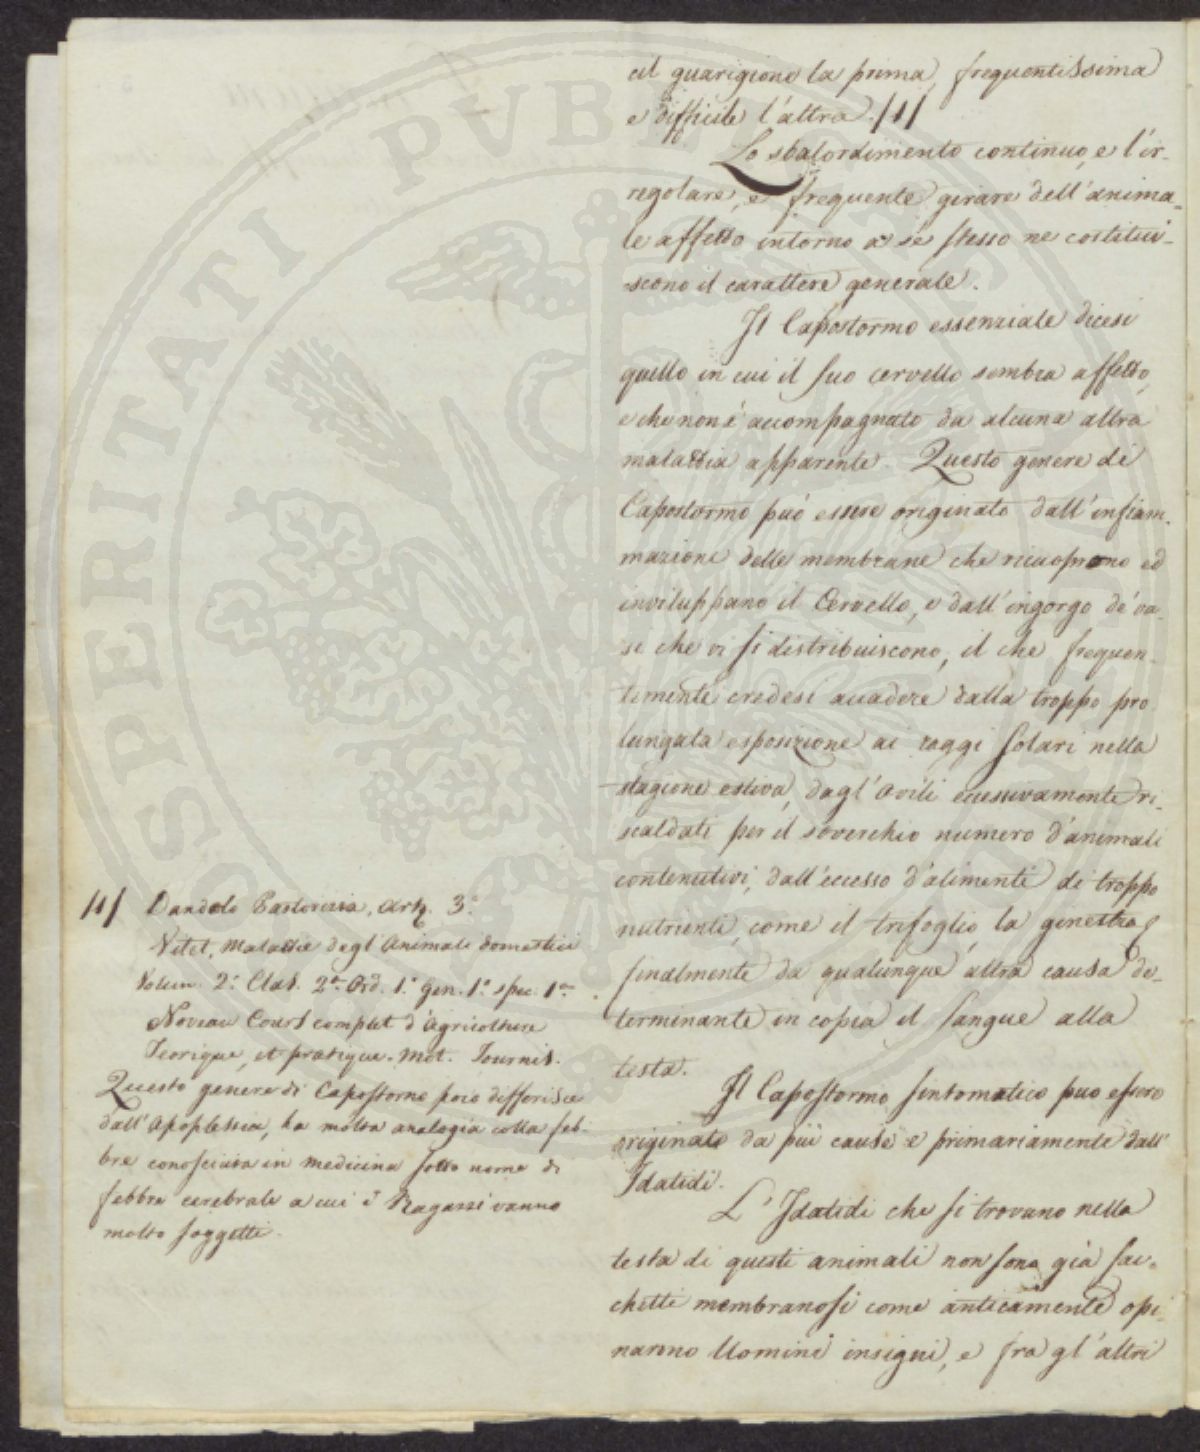 ed guarigione la prima, frequentissima
e difficile l'altra. /1/
Lo sbalordimento continuo, e l'ir-
regolare, e frequente girare dell'anima-
le affetto intorno a se stesso ne costitui-
scono il carattere generale.
Il Capostormo essenziale dicesi
quello in cui il suo cervello sembra affetto,
e che non è accompagnato da alcuna altra
malattia apparente. Questo genere di
Capostormo può essere originato dall'infiam-
mazione delle membrane che ricuoprono ed
inviluppano il Cervello, e dall'ingorgo de' va-
si che vi si distribuiscono, il che frequen-
temente credesi accadere dalla troppo pro
lungata esposizione ai raggi solari nella
stagione estiva, dagl'Ovili eccessivamente ri-
scaldati per il soverchio numero d'animali
contenutivi, dall'eccesso d'alimenti di troppo
nutrienti, come il trifoglio, la ginestra e
finalmente da qualunque altra causa de-
terminante in copia il sangue alla
testa.
Il Capostormo sintomatico puo essere
originato da più cause e primariamente dall'
Idatidi.
L'Idatidi che si trovano nella
testa di questi animali non sono già sac-
chetti membranosi come anticamente opi-
narono Uomini insigni, e fra gl'altri
/1/ Dandolo Pastorizia, Art. 3.°
Vitet, Malattie degl'Animali domestici
Volum. 2.° Clas. 2.a Ord. 1.° Gen. 1.° spec. 1.a
Noveau Cours complet d'Agricolture
Teorique, et pratique. Mot. Tournis.
Questo genere di Capostorno poco differisce
dall'Apoplessia, ha molta analogia colla feb-
bre conosciuta in medicina sotto nome di
febbre cerebrale a cui i Ragazzi vanno
molto soggetti.
PVBLICAE
PROSPERITATI